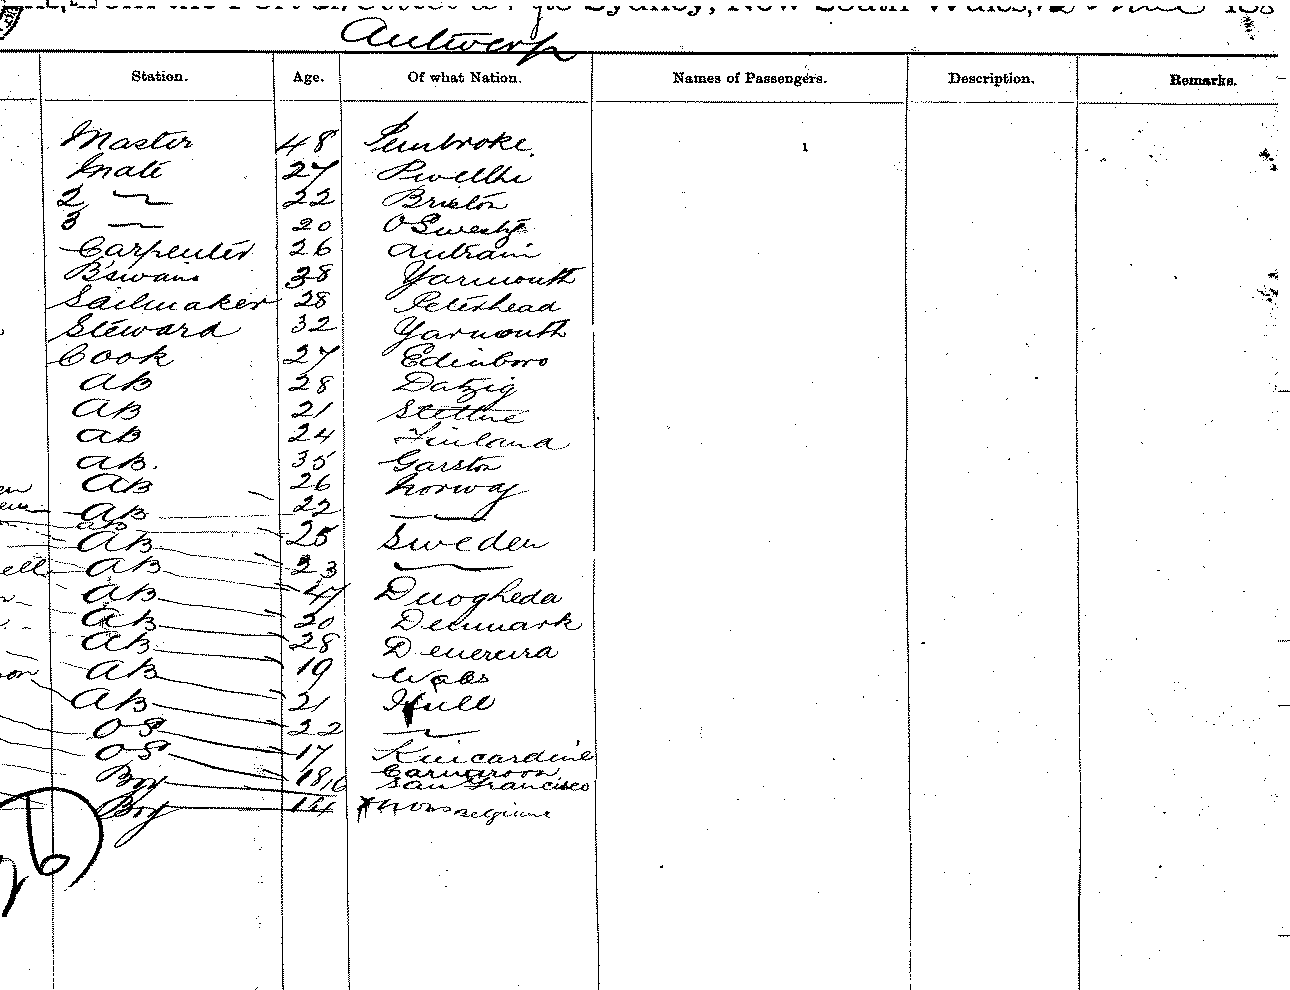 from the Port of to Sydney, New South Wales,
Antwerp
Station. Age. Of what Nation. Names of Passengers. Description. Remarks.
Master 48 Pembroke.
Mate 27 Pwellhi
2 — 22 Bristol
3 — 20 OSwesty
Carpenter 26 Antrain
B'swain 38 Yarmouth
Sailmaker 28 Peterhead
Steward 32 Yarmouth
Cook 27 Edinboro
AB 28 Datzig
AB 21 Stettine
AB 24 Finland
AB. 35 Garston
AB 26 Norway
AB 22 —
AB 25 Sweden
AB 23 —
AB 47 Drogheda
AB 20 Denmark
AB 28 Demerara
AB 19 Wales
AB 21 Hull
OS 22 —
OS 17 Kincardine
Boy 18 Carnarvon
16 San Francisco
Boy 14 Mons Belgium
26